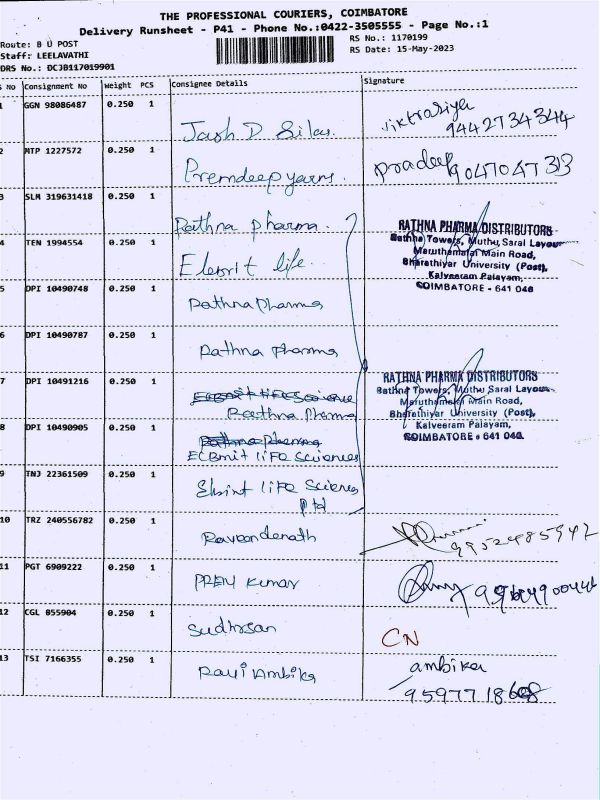 THE PROFESSIONAL COURIERS, COIMBATORE
Delivery Runsheet - P41 - Phone No.:0422-3505555 - Page No.:1
Route: B U POST
RS No.: 1170199
Staff: LEELAVATHI
RS Date: 15-May-2023
DRS No.: DCJB117019901
S No Consignment No Weight PCS Consignee Details Signature
1 GGN 98086487 0.250 1
Jash D Silas.
9442734344
2 MTP 1227572 0.250 1
Premdeep yarns.
pradeep 9047047313
3 SLM 319631418 0.250 1
Rathna pharma.
RATHNA PHARMA DISTRIBUTORS
Rathna Towers, Muthu Saral Layout
Maruthamalai Main Road,
Bharathiyar University (Post),
Kalveeram Palayam,
COIMBATORE - 641 046
4 TEN 1994554 0.250 1
life.
5 DPI 10490748 0.250 1
Rathna Pharma
6 DPI 10490787 0.250 1
Rathna Pharma
7 DPI 10491216 0.250 1
Raathna Pharma
RATHNA PHARMA DISTRIBUTORS
Rathna Towers, Muthu Saral Layout
Maruthamalai Main Road,
Bharathiyar University (Post),
Kalveeram Palayam,
COIMBATORE - 641 046
8 DPI 10490905 0.250 1
Rathna Pharma
liFe Sciences
9 TNJ 22361509 0.250 1
liFe Sciences
Ptd
10 TRZ 240556782 0.250 1
Raveendenath
9952485942
11 PGT 6909222 0.250 1
PREM Kumar
12 CGL 855904 0.250 1
Sudhrsan
CN
13 TSI 7166355 0.250 1
Ravi Ambika
ambika